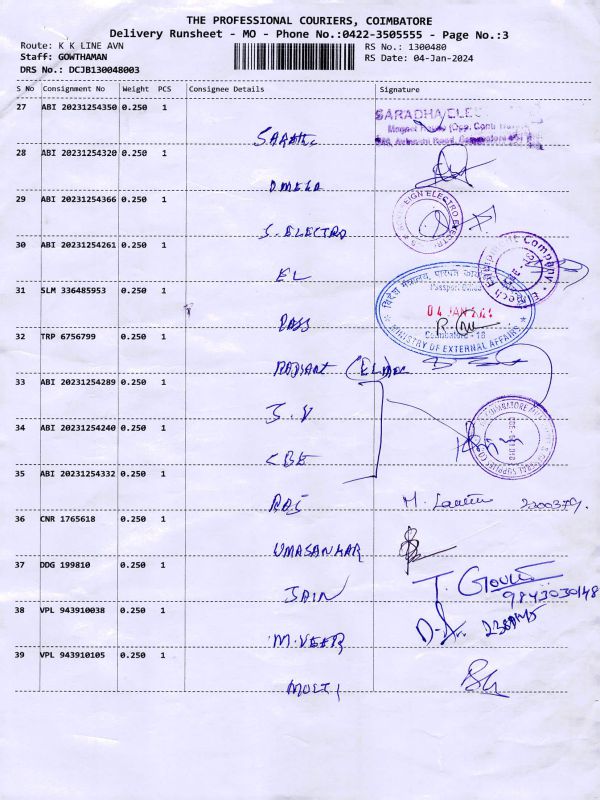 THE PROFESSIONAL COURIERS, COIMBATORE
Delivery Runsheet - MO - Phone No.:0422-3505555 - Page No.:3
Route: K K LINE AVN
RS No.: 1300480
Staff: GOWTHAMAN
RS Date: 04-Jan-2024
DRS No.: DCJB130048003
S No Consignment No Weight PCS Consignee Details Signature
27 ABI 20231254350 0.250 1
SARADHA ELEC
28 ABI 20231254320 0.250 1
OMEGA
29 ABI 20231254366 0.250 1
S. ELECTRO
30 ABI 20231254261 0.250 1
EL
31 SLM 336485953 0.250 1
विदेश मंत्रालय,
Passport Office
04 JAN
PASS
Coimbatore - 18
MINISTRY OF EXTERNAL AFFAIRS
32 TRP 6756799 0.250 1
33 ABI 20231254289 0.250 1
S.V
34 ABI 20231254240 0.250 1
CBE
35 ABI 20231254332 0.250 1
RAJ
36 CNR 1765618 0.250 1
UMASANKAR
37 DDG 199810 0.250 1
JAIN
9843030148
38 VPL 943910038 0.250 1
M.VEER
39 VPL 943910105 0.250 1
MULTI